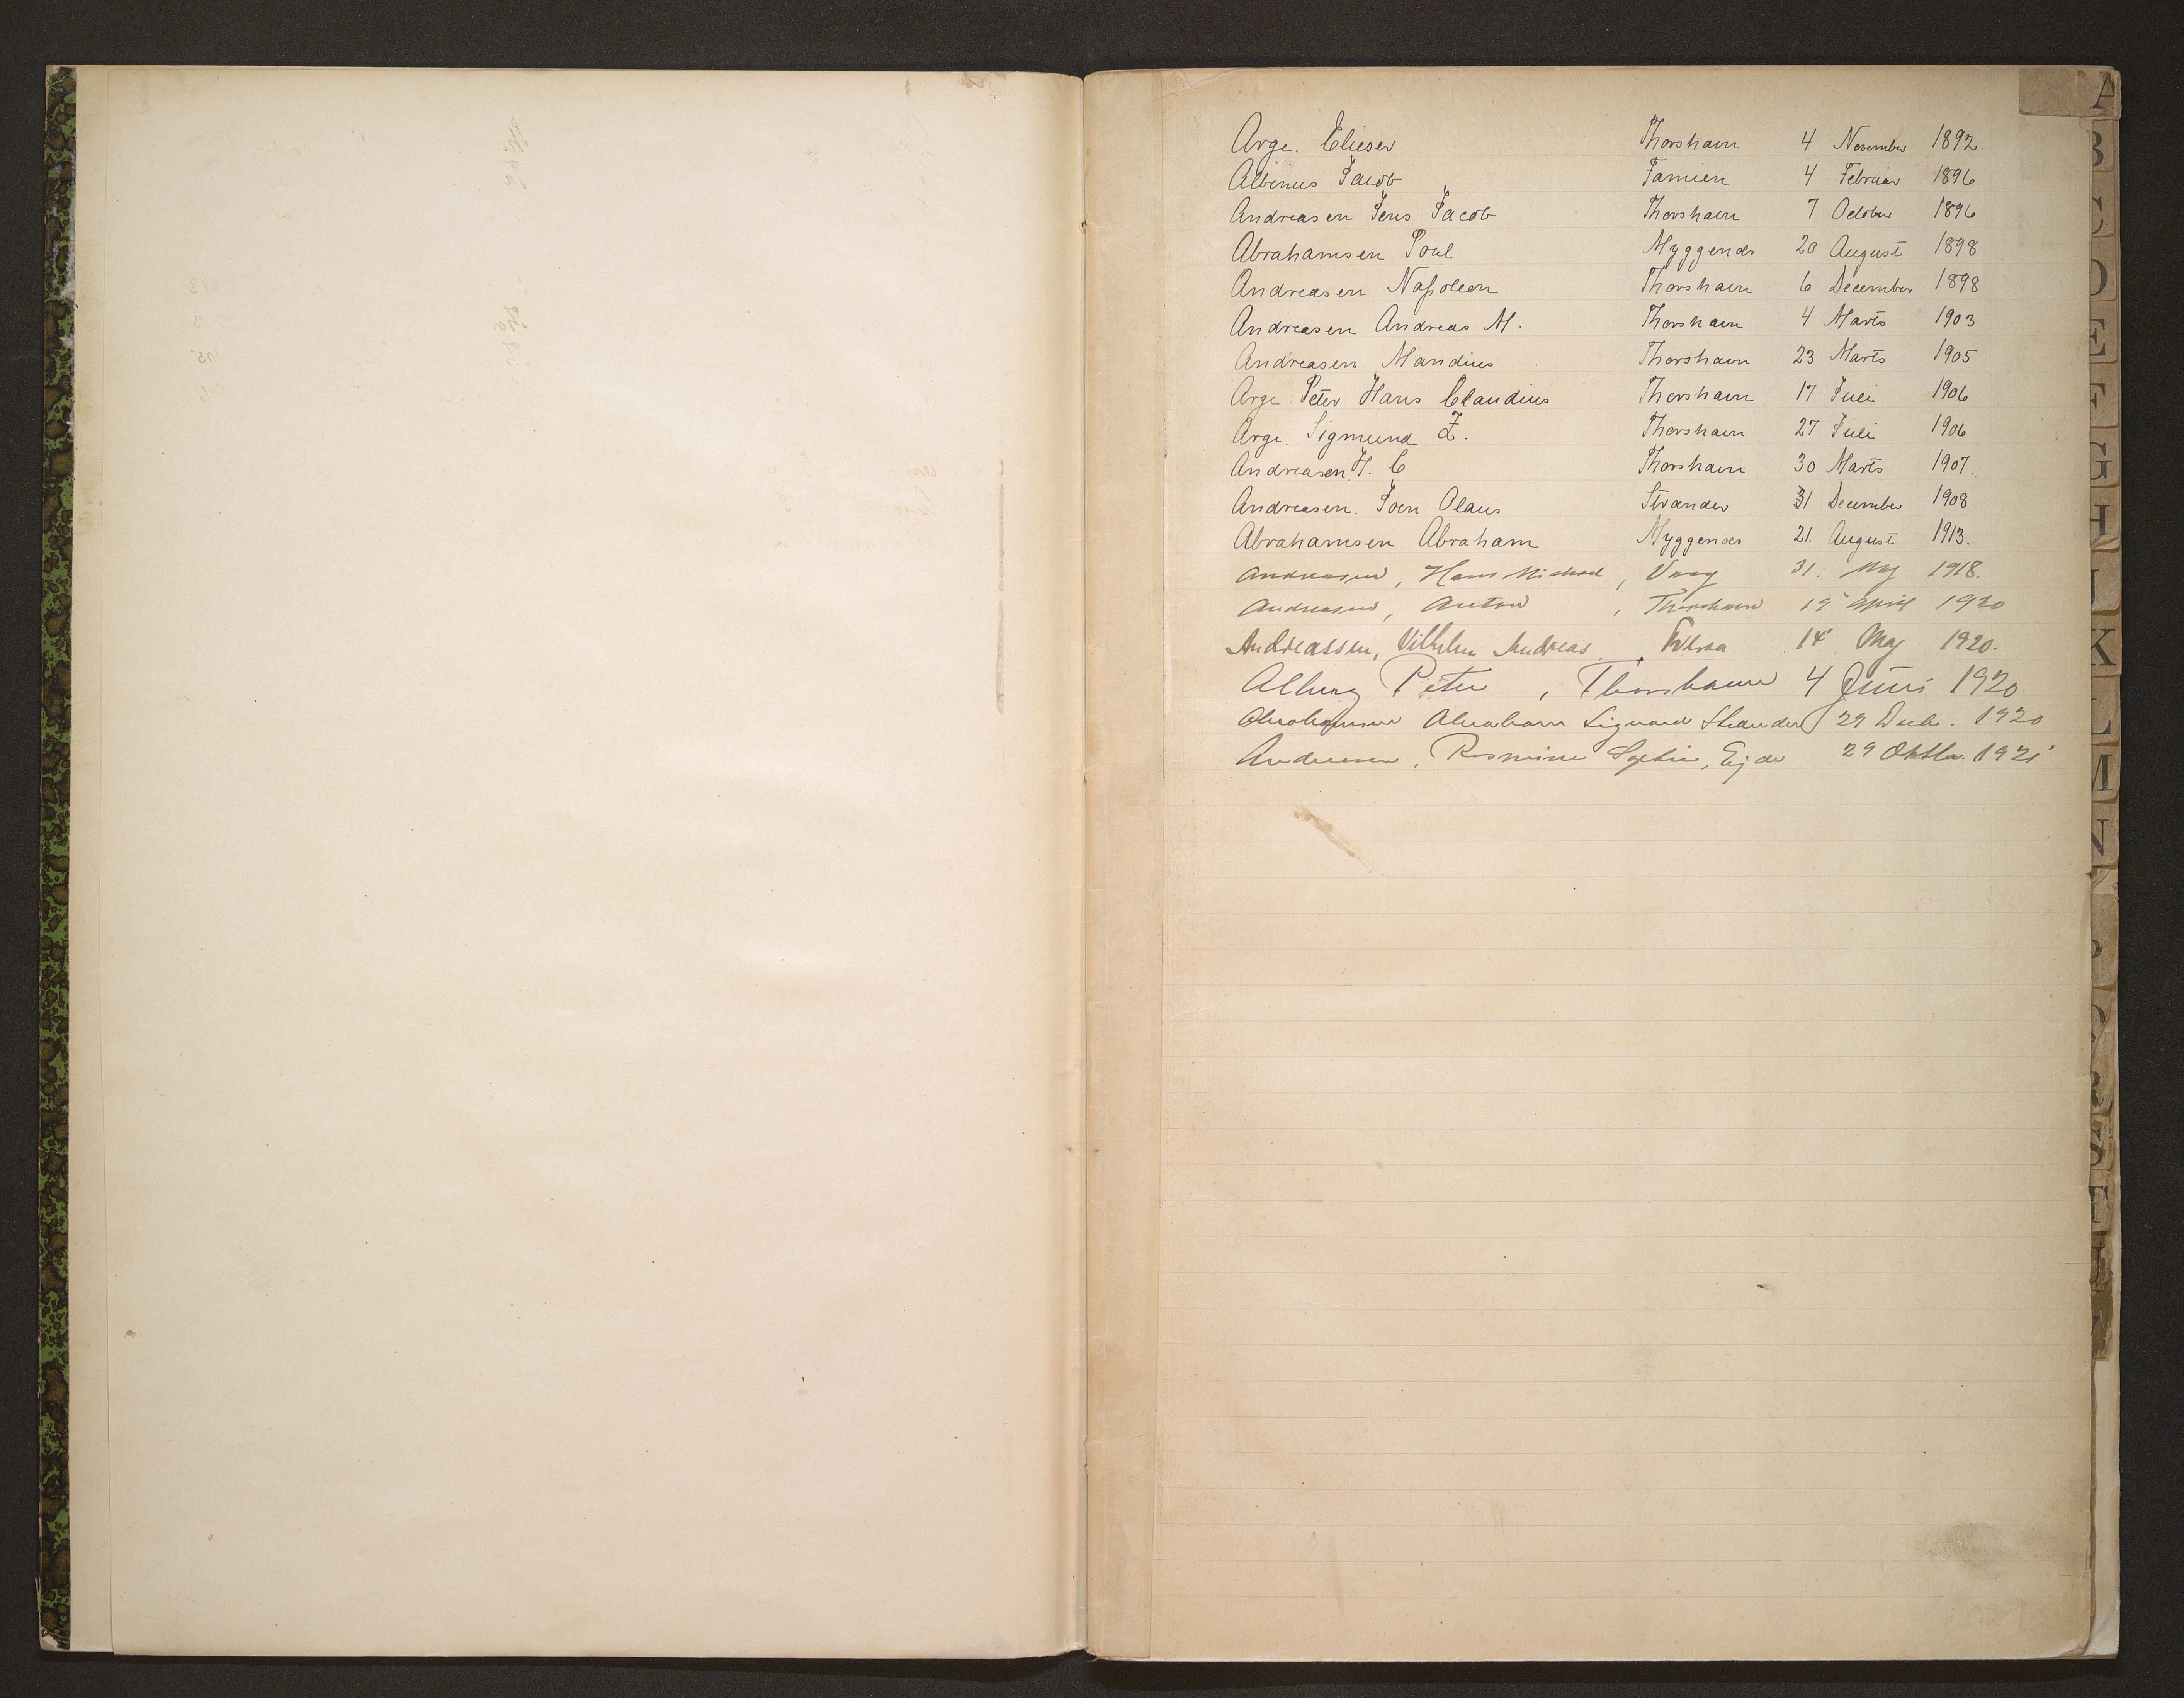 Arge. Elieser Thorshavn 4 November 1892
Albinus Jacob Famien 4 Februar 1896
Andreasen Jens Jacob Thorshavn 7 October 1896
Abrahamsen Poul Myggenæs 20 August 1898
Andreasen Napoleon Thorshavn 6 December 1898
Andreasen Andreas M. Thorshavn 4 Marts 1903
Andreasen Mandius Thorshavn 23 Marts 1905
Arge Peter Hans Claudius Thorshavn 17 Juli 1906
Arge. Sigmund Z. Thorshavn 27 Juli 1906
Andreasen H. C Thorshavn 30 Marts 1907.
Andreasen. Joen Olaus Strænder 31 December 1908
Abrahamsen Abraham Myggenæs 21. August 1913.
Andreasen, Hans Michael, Vaag 31. Maj 1918.
Andreasen, Anton, Thorshavn April 1920
Andreassen, Vilhelm Andreas, 14 Maj 1920.
Peter, Thorshavn 4 Juni 1920
Abrahamsen Abraham Sigvard Strænder 29 Decb. 1920
Andreasen, Rasmine Sophie, Ejde 29 Oktbr. 1921
A
B
C
D
E
F
G
H
I
K
L
M
N
P
R
S
T
U